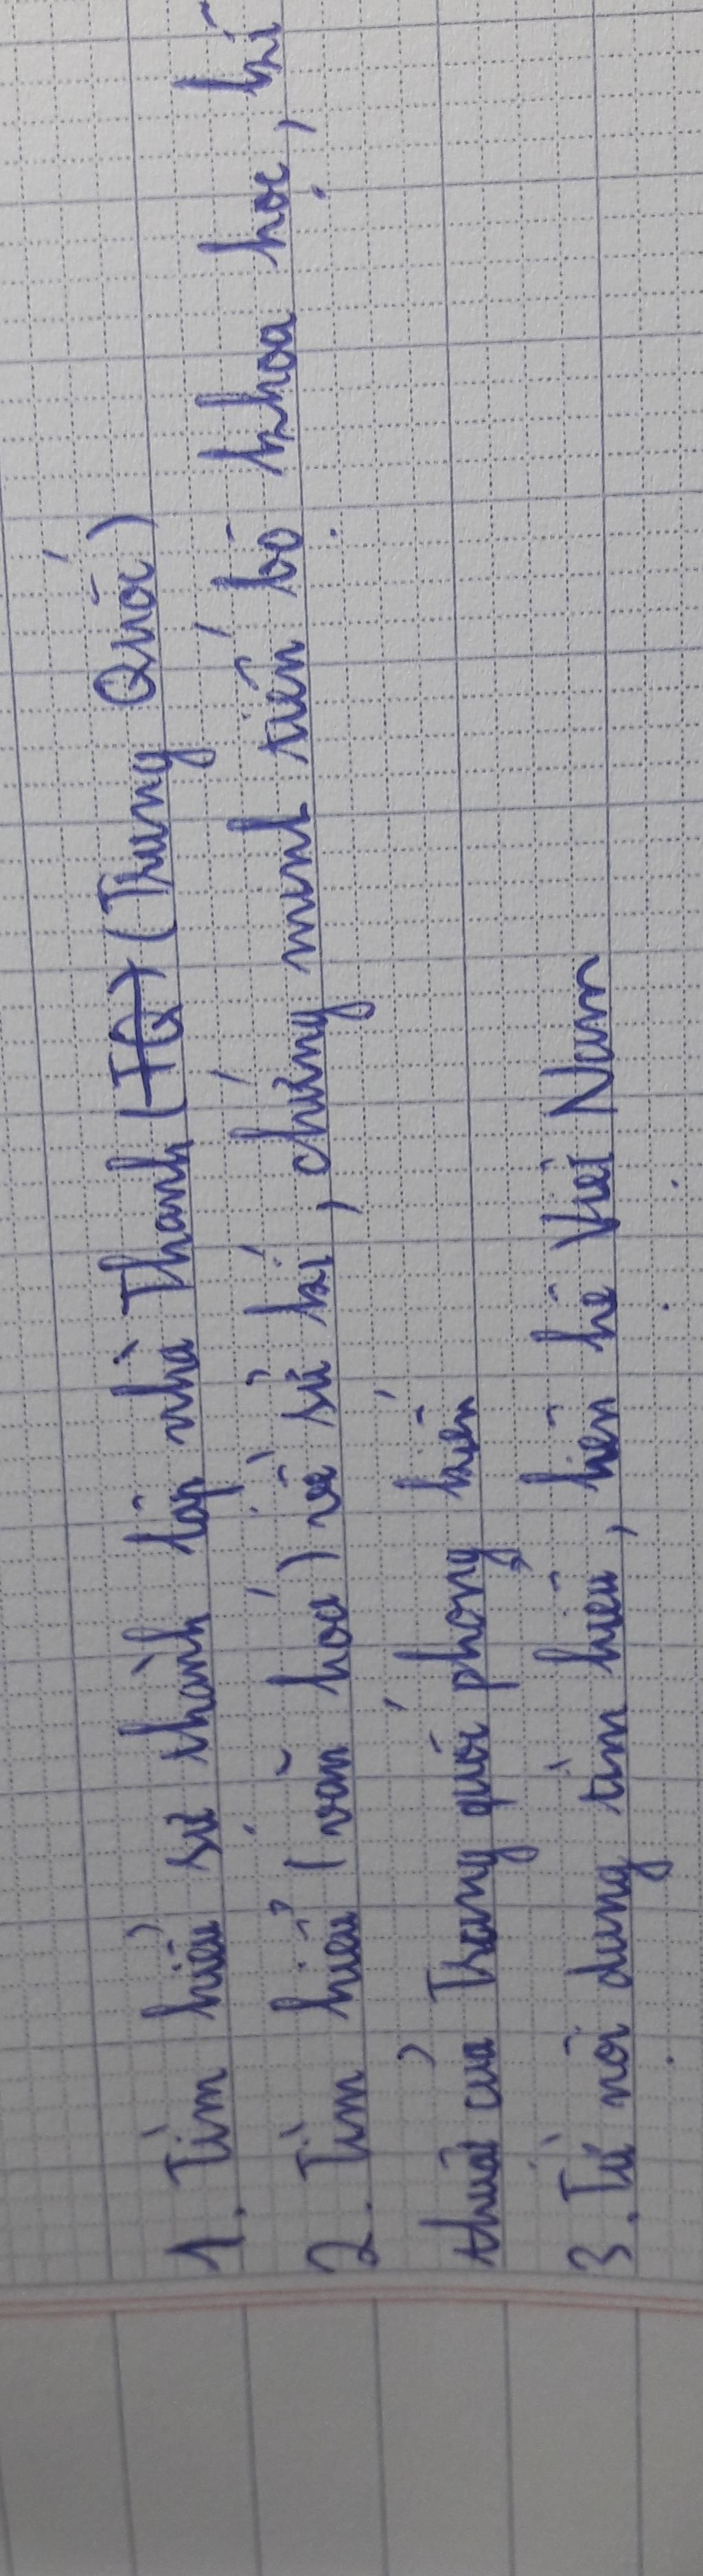 1. Tìm hiểu sự thành lập nhà Thanh (TQ) (Trung Quốc)
2. Tìm hiểu (văn hoá) về sử kí, chứng minh tiến bộ khoa học, kĩ
thuật của Trung quốc phong kiến
3. Từ nội dung tìm hiểu, liên hệ Việt Nam